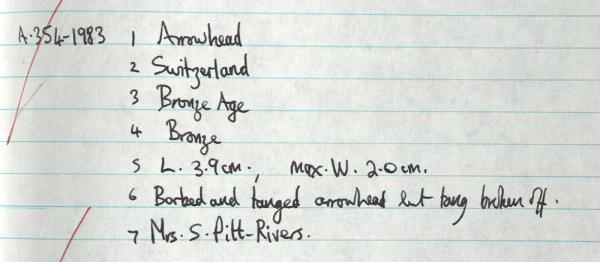 A.354-1983 1 Arrowhead
2 Switzerland
3 Bronze Age
4 Bronze
5 L. 3.9cm., max. W. 2.0cm.
6 Barbed and tanged arrowhead but tang broken off.
7 Mrs. S. Pitt-Rivers.